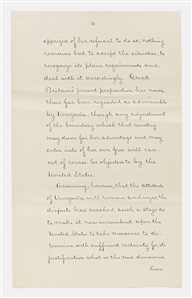 apprized of her refusal to do so, nothing
remains but to accept the situation, to
recognize its plain requirements and
deal with it accordingly. Great
Britain's present proposition has never
thus far been regarded as admissible
by Venezuela, though any adjustment
of the boundary which that country
may deem for her advantage and may
enter into of her own free will can-
not of course be objected to by the
United States.
Assuming, however, that the attitude
of Venezuela will remain unchanged, the
dispute has reached such a stage as
to make it now incumbent upon the
United States to take measures to de-
termine with sufficient certainty for its
justification what is the true divisional
line